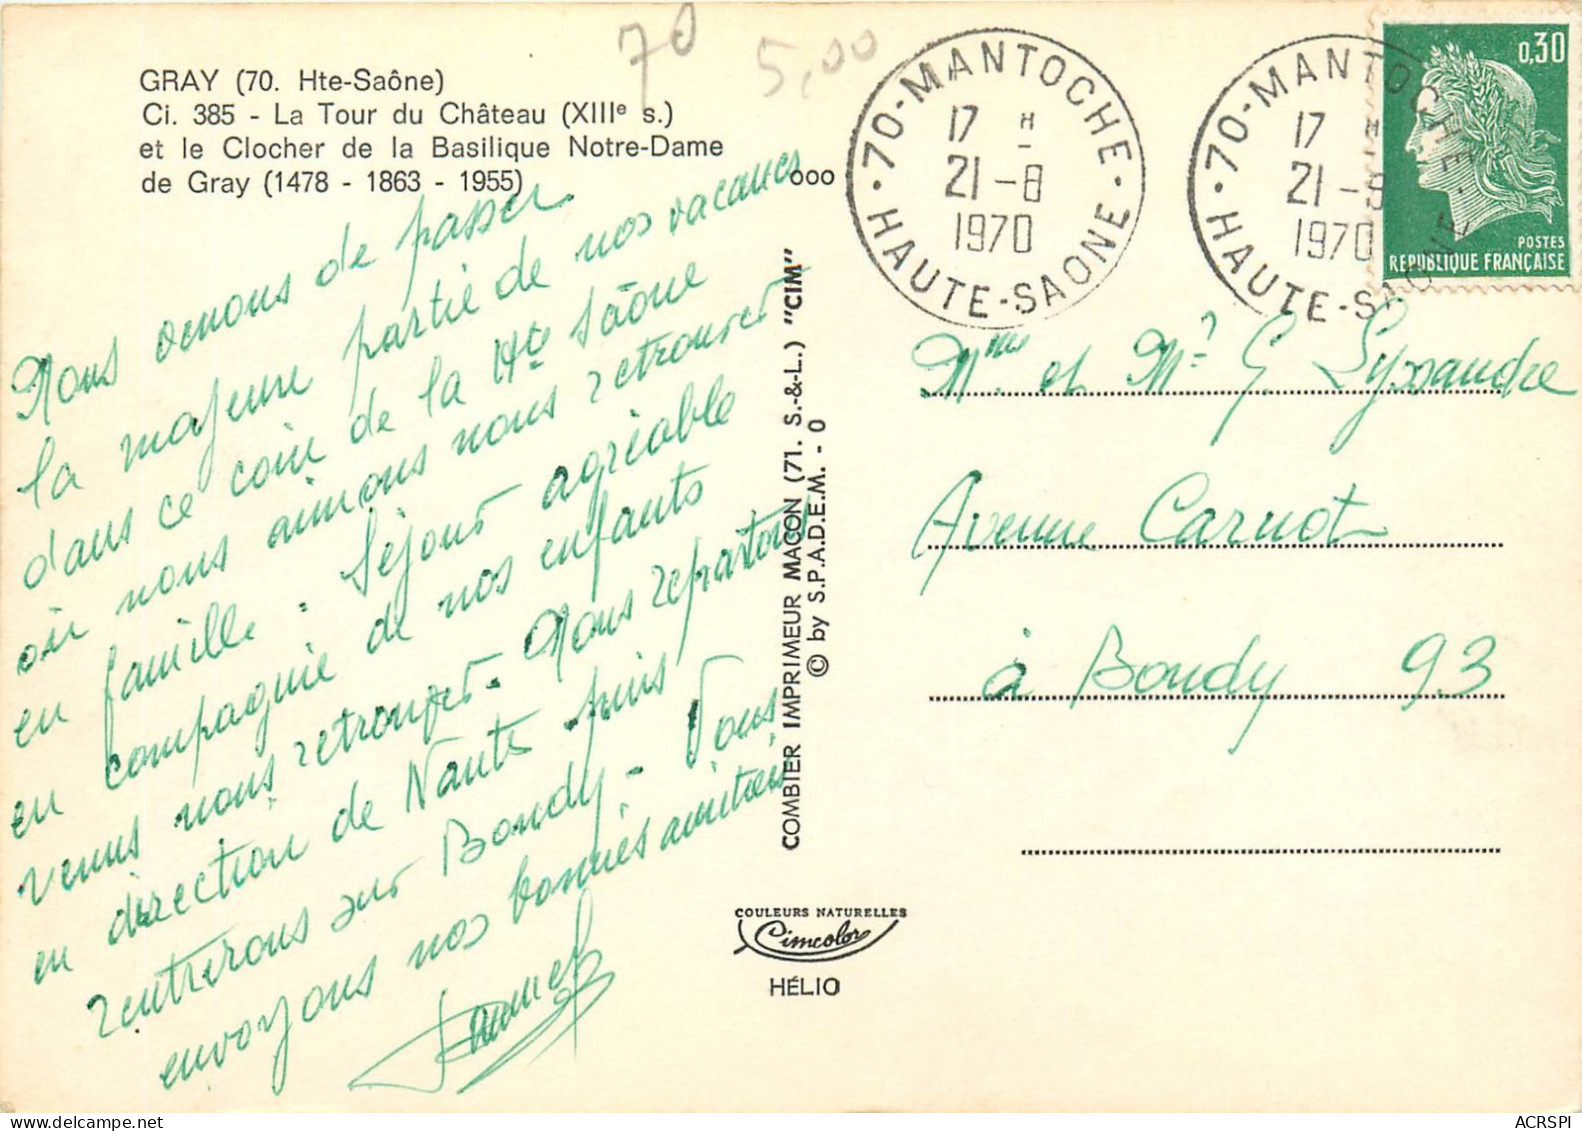 70
5,00
GRAY (70. Hte-Saône)
Ci. 385 - La Tour du Château (XIIIe s.)
et le Clocher de la Basilique Notre-Dame
de Gray (1478 - 1863 - 1955)
ooo
Nous venons de passer
la majeure partie de nos vacances
dans ce coin de la Hte Saône
où nous aimons nous retrouver
en famille. Séjour agréable
en compagnie de nos enfants
venus nous retrouver - Nous repartons
en direction de Nantes puis
rentrerons sur Bondy - Vous
envoyons nos bonnes amitiés
COMBIER IMPRIMEUR MACON (71. S.-&-L.) "CIM"
© by S.P.A.D.E.M. - O
COULEURS NATURELLES
Cimcolor
HÉLIO
70 - MANTOCHE
17 H
21 - 8
1970
HAUTE-SAONE
70 - MANTOCHE
17 H
21 - 8
1970
HAUTE-SAONE
0,30
POSTES
REPUBLIQUE FRANÇAISE
Mme et Mr G. Lyxandre
Avenue Carnot
à Bondy 93
ACRSPI